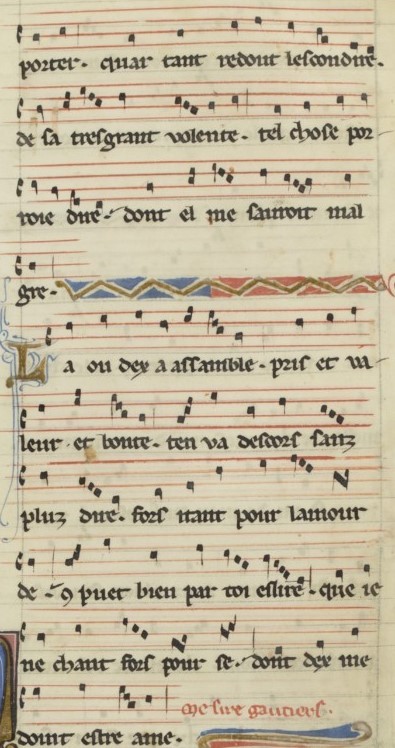 porter. quar tant redout lescondire.
de sa tresgrant volente. tel chose por
roie dire. dont el me sauroit mal
gre.
La ou dex a assamble. pris et va
leur et bonte. ten va descors sanz
pluz dire. fors itant pour lamour
de. ꝯ puet bien par toi eslire. que ie
ne chant fors pour se. dont dex me
doint estre ame.
me sire gautiers.